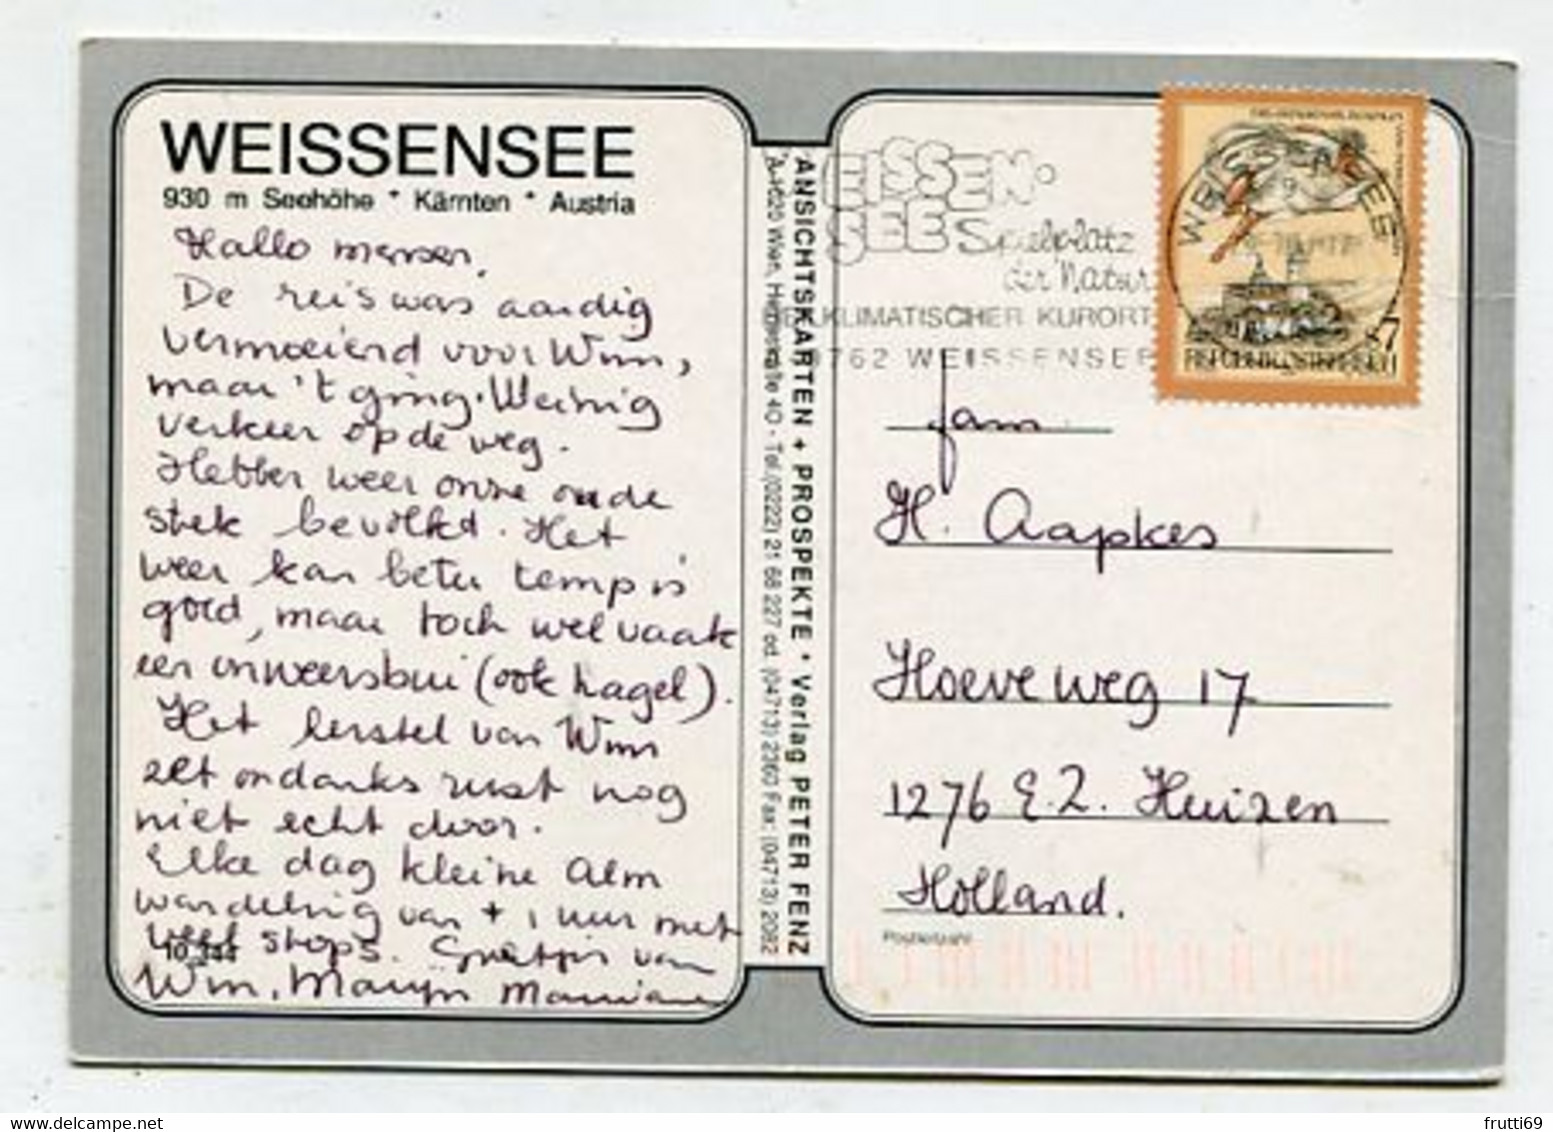 WEISSENSEE
930 m Seehöhe * Kärnten * Austria
Hallo mensen,
De reis was aardig
vermoeiend voor Wim,
maar 't ging. Weinig
verkeer op de weg.
Hebben weer onze oude
stek bevolkt. Het
weer kan beter temp is
goed, maar toch wel vaak
een onweersbui (ook hagel).
Het herstel van Wim
zet ondanks rust nog
niet echt door.
Elke dag kleine Alm
wandeling van + 1 uur met
veel stops. Groetjes van
10.
Wim, Marijn Marian
ANSICHTSKARTEN + PROSPEKTE * Verlag PETER FENZ
A-1020 Wien, 40 - Tel.(0222) 21 68 227 od. (04713) 2360 Fax: (04713) 2092
EISSEN-
SEE Spielplatz
der Natur
HEILKLIMATISCHER KURORT
9762 WEISSENSEE
WEISSENSEE
REPUBLIK ÖSTERREICH
fam.
H. Aapkes
Hoeveweg 17
1276 E.Z. Huizen
Holland.
Postleitzahl
frutti69